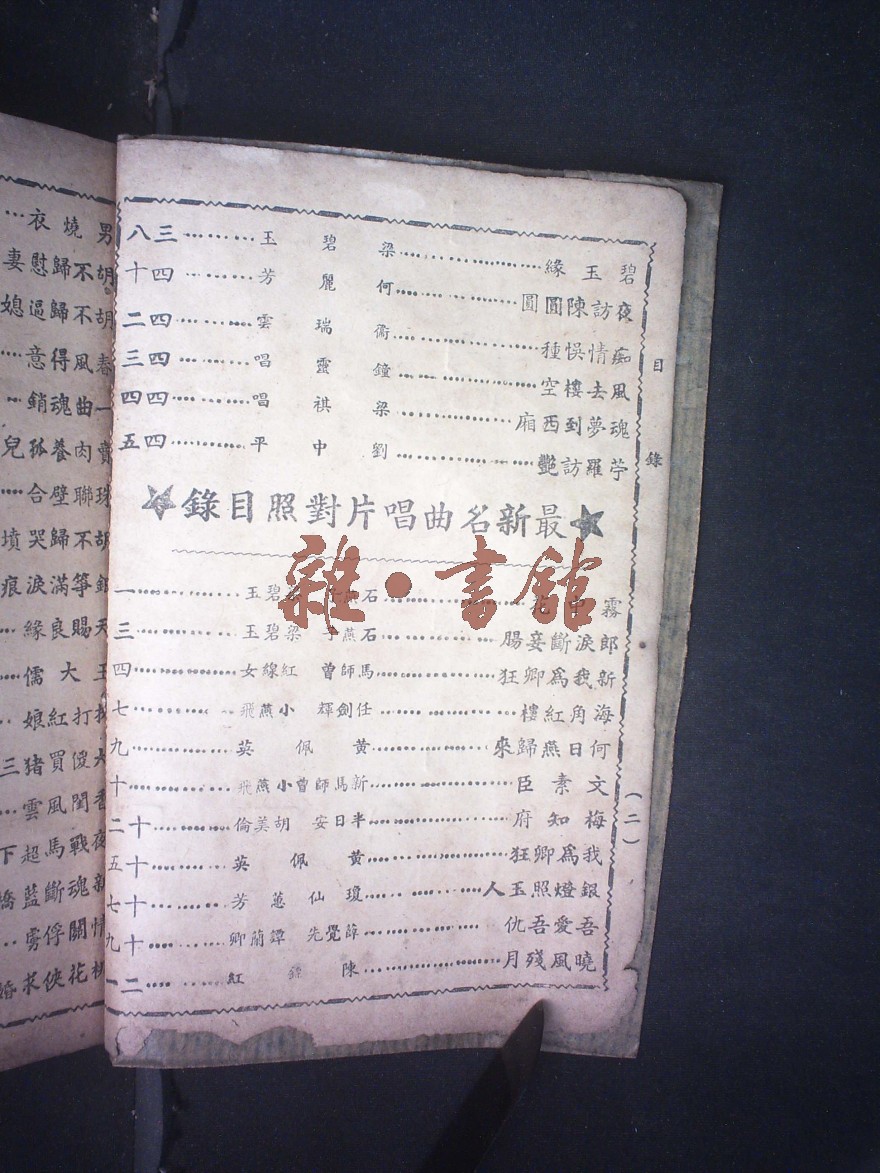 目錄
碧玉緣………梁碧玉………三八
夜訪陳圓圓………何麗芳………四十
痴情悞種………衞瑞雲………四二
風去樓空………鐘靈唱………四三
魂夢到西廂………梁祺唱………四四
苧羅訪艷………劉中平………四五
最新名曲唱片對照目錄
霧中花………石燕子 梁碧玉………一
郎淚斷妾腸………石燕子 梁碧玉………三
新我為卿狂………馬師曾 紅線女………四
海角紅樓………任劍輝 小燕飛………七
何日燕歸來………黃佩英………九
文素臣………新馬師曾小燕飛………十
梅知府………半日安 胡美倫………十二
我為卿狂………黃佩英………十五
銀燈照玉人………瓊仙蕙芳………十七
吾愛吾仇………薛覺先 譚蘭卿………十九
曉風殘月………陳錦紅………二一
(二)
男燒衣…
胡不歸慰妻
胡不歸逼媳
春風得意…
一曲魂銷…
賣肉養孤兒
珠聯璧合…
胡不歸哭墳
銀箏滿淚痕
天賜良緣…
王大儒…
打紅娘…
大儍買猪三
香閨風雲…
夜戰馬超下
新魂斷藍橋
情關俘虜…
桃花俠求婚
雜·書館